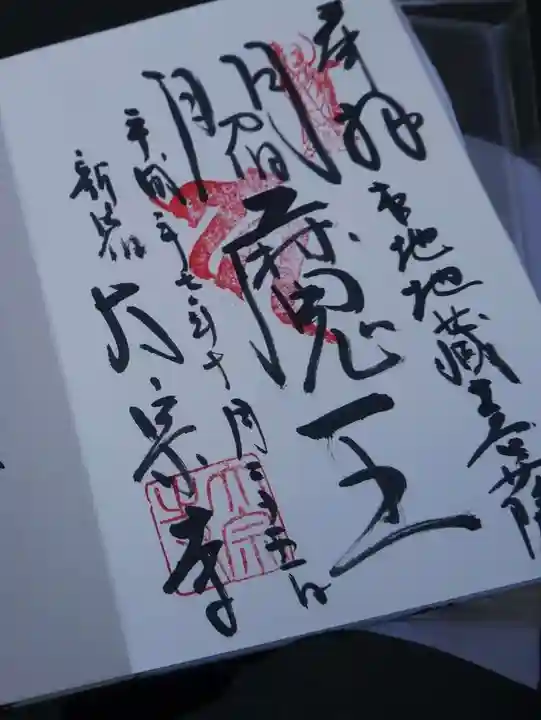 奉拝
地蔵菩薩
閻魔王
平成二十七年十月二十五日
新宿 太宗寺